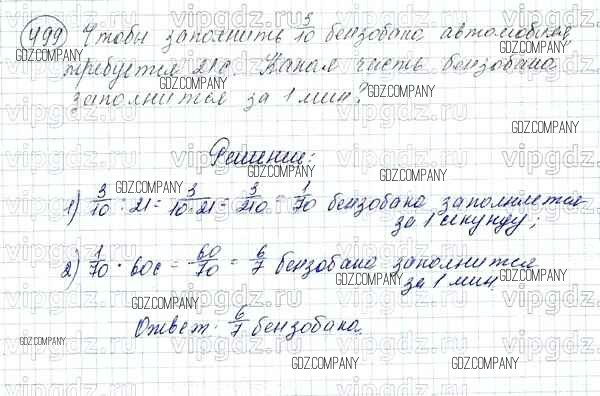 499 Чтобы заполнить 3/10 бензобака автомобиля,
требуется 21с. Какая часть бензобака
заполнится за 1 мин?
Решение:
1) 3/10 : 21 = 3/10·21 = 3/210 = 1/70 бензобака заполняется
за 1 секунду;
2) 1/70 · 60с = 60/70 = 6/7 бензобака заполнится
за 1 мин
Ответ: 6/7 бензобака.
GDZ.COMPANY
vipgdz.ru